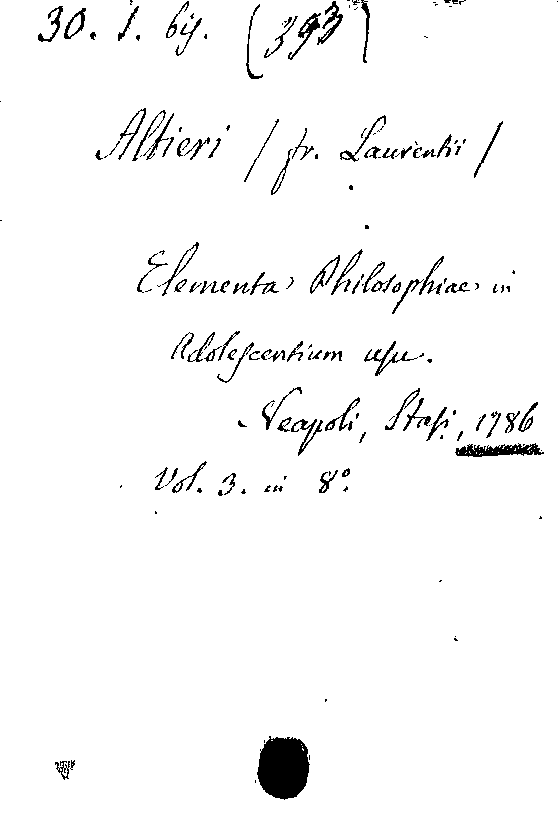 30. 1. bis. (393)
Altieri / fr. Laurentii /
Elementa Philosophiae in
Adolescentium usu.
Neapoli, Stasi, 1786
Vol. 3. in 8º.